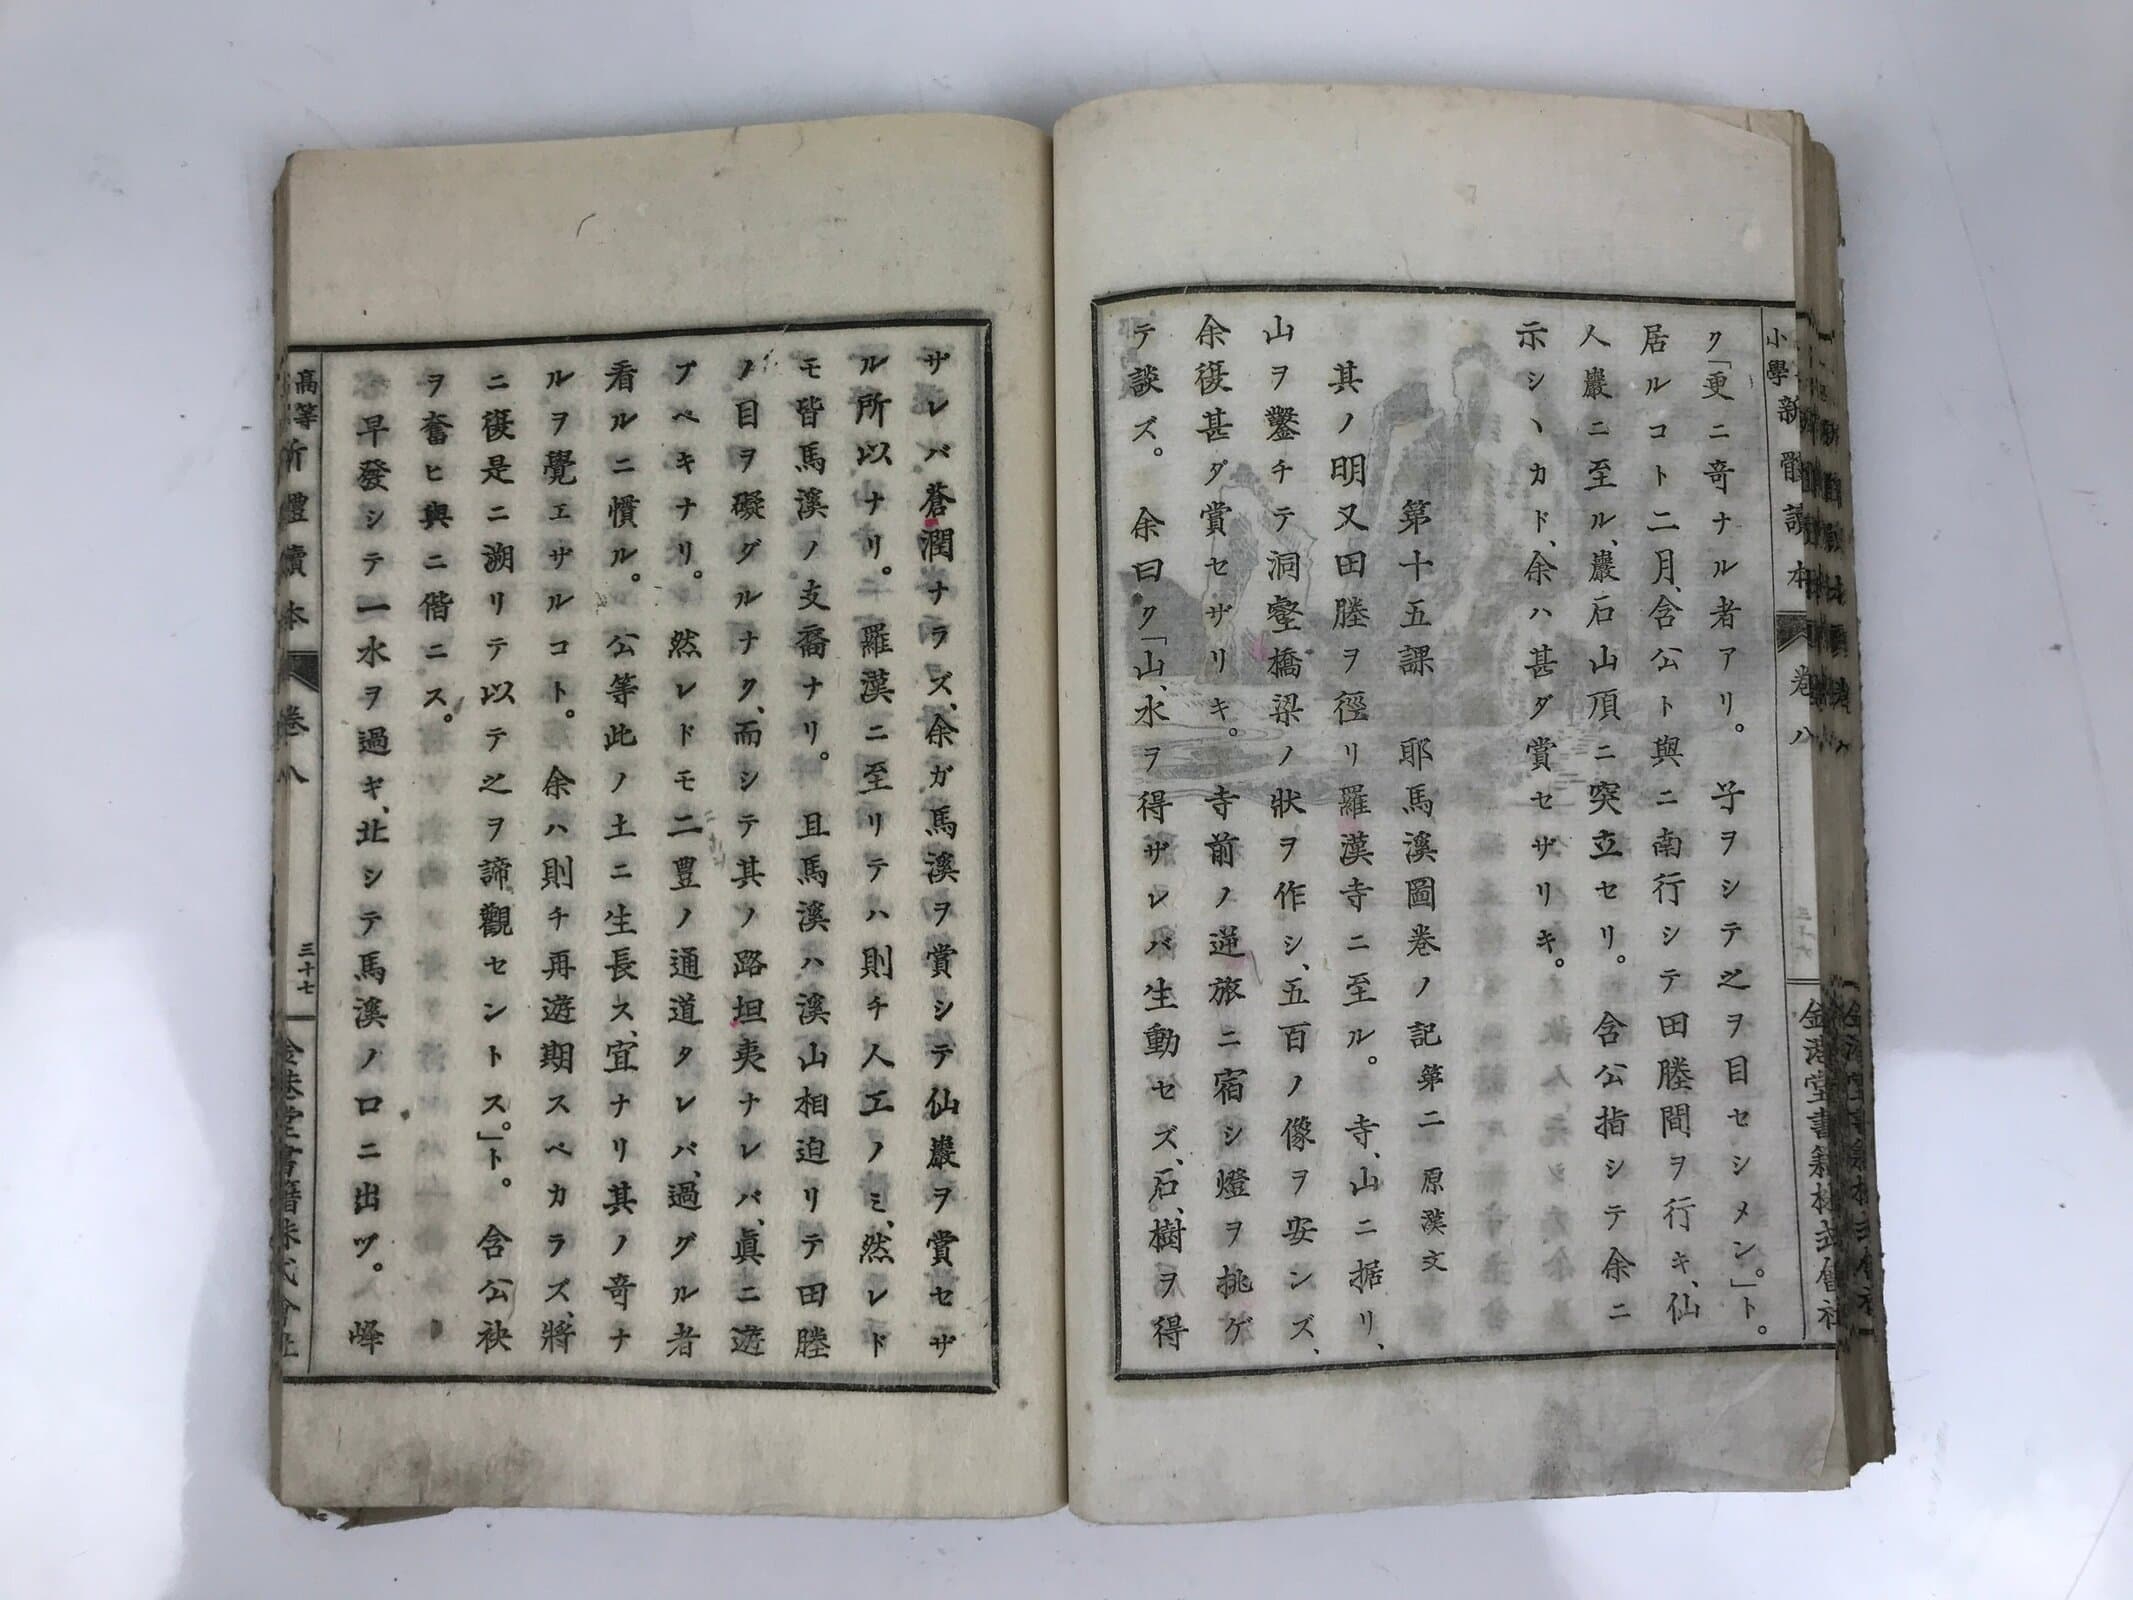 小學新體讀本 卷八 金港堂書籍株式會社
ク「更ニ奇ナル者アリ。子ヲシテ之ヲ目セシメン。」ト。
居ルコト二月、含公ト與ニ南行シテ田塍間ヲ行キ、仙
人巖ニ至ル、巖石山頂ニ突立セリ。含公指シテ余ニ
示シヽカド、余ハ甚ダ賞セザリキ。
第十五課 耶馬溪圖卷ノ記 第二 原漢文
其ノ明又田塍ヲ徑リ羅漢寺ニ至ル。寺、山ニ据リ、
山ヲ鑿チテ洞壑橋梁ノ狀ヲ作シ、五百ノ像ヲ安ンズ、
余復甚ダ賞セザリキ。寺前ノ逆旅ニ宿シ燈ヲ挑ゲ
テ談ズ。余曰ク「山、水ヲ得ザレバ生動セズ、石、樹ヲ得
ザレバ蒼潤ナラズ、余ガ馬溪ヲ賞シテ仙巖ヲ賞セザ
ル所以ナリ。羅漢ニ至リテハ則チ人工ノミ、然レド
モ皆馬溪ノ支裔ナリ。且馬溪ハ溪山相迫リテ田塍
ノ目ヲ礙グルナク、而シテ其ノ路坦夷ナレバ、眞ニ遊
ブベキナリ。然レドモ二豊ノ通道タレバ、過グル者
看ルニ慣ル。公等此ノ土ニ生長ス、宜ナリ其ノ奇ナ
ルヲ覺エザルコト。余ハ則チ再遊期スベカラズ、將
ニ復是ニ溯リテ以テ之ヲ諦觀セントス。」ト。含公袂
ヲ奮ヒ與ニ偕ニス。
早發シテ一水ヲ過ギ、北シテ馬溪ノ口ニ出ヅ。峰
高等 新體讀本 卷八 三十七 金港堂書籍株式會社